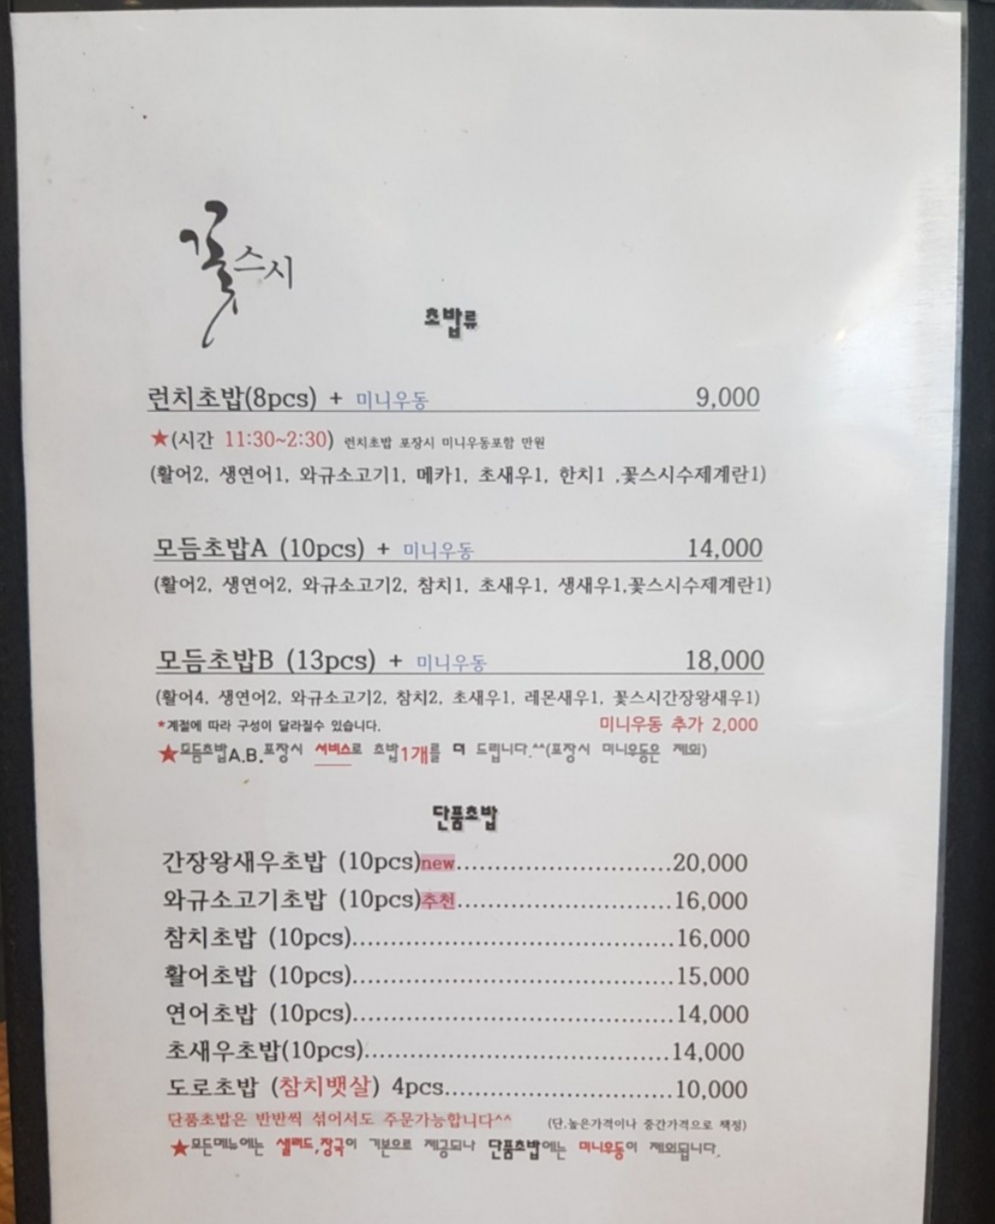 꽃스시
초밥류
런치초밥(8pcs) + 미니우동 9,000
★(시간 11:30~2:30) 런치초밥 포장시 미니우동포함 만원
(활어2, 생연어1, 와규소고기1, 메카1, 초새우1, 한치1 ,꽃스시수제계란1)
모듬초밥A (10pcs) + 미니우동 14,000
(활어2, 생연어2, 와규소고기2, 참치1, 초새우1, 생새우1,꽃스시수제계란1)
모듬초밥B (13pcs) + 미니우동 18,000
(활어4, 생연어2, 와규소고기2, 참치2, 초새우1, 레몬새우1, 꽃스시간장왕새우1)
*계절에 따라 구성이 달라질수 있습니다. 미니우동 추가 2,000
★모듬초밥A.B.포장시 서비스로 초밥1개를 더 드립니다.^^(포장시 미니우동은 제외)
단품초밥
간장왕새우초밥 (10pcs)new.............................20,000
와규소고기초밥 (10pcs)추천.............................16,000
참치초밥 (10pcs)...........................................16,000
활어초밥 (10pcs)...........................................15,000
연어초밥 (10pcs)...........................................14,000
초새우초밥(10pcs).........................................14,000
도로초밥 (참치뱃살) 4pcs...............................10,000
단품초밥은 반반씩 섞어서도 주문가능합니다^^ (단,높은가격이나 중간가격으로 책정)
★모든메뉴에는 샐러드,장국이 기본으로 제공되나 단품초밥에는 미니우동이 제외됩니다.